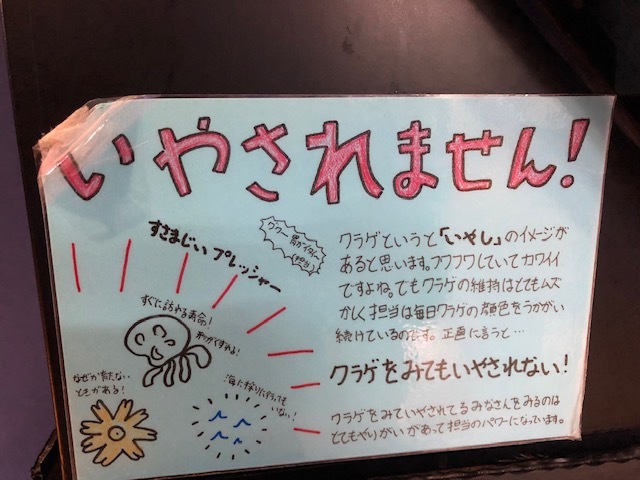 いやされません!
すさまじい プレッシャー
ウウー 胃がイタイ…
(担当)
クラゲというと「いやし」のイメージが
あると思います。フワフワしていてカワイイ
ですよね。でもクラゲの維持はとてもムズ
かしく担当は毎日クラゲの顔色をうかがい
続けているのです。正直に言うと…
クラゲをみてもいやされない!
クラゲをみていやされてるみなさんをみるのは
とてもやりがいがあって担当のパワーになっています。
すぐに訪れる寿命!
わかってすれよ!
なぜか育たない
ときがある!
海に採りに行っても
いない!